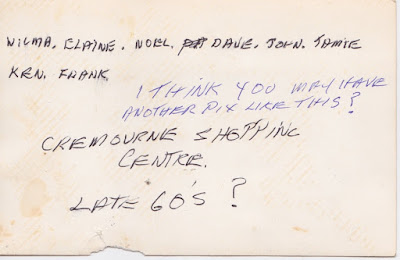 WILMA. ELAINE. NOEL. DAVE. JOHN. JAMIE
KEN. FRANK
I THINK YOU MAY HAVE
ANOTHER PIX LIKE THIS?
CREMOURNE SHOPPING
CENTRE.
LATE 60'S ?